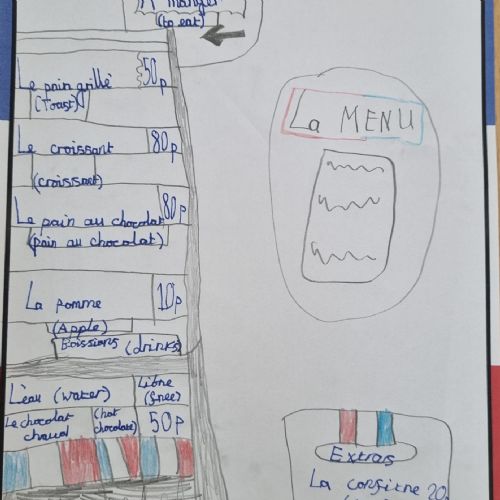 À manger
(to eat)
Le pain grillé 50p
(toast)
Le croissant 80p
(croissant)
Le pain au chocolat 80p
(pain au chocolat)
La pomme 10p
(Apple)
Boissons (drinks)
L'eau (water) Libre (free)
Le chocolat chaud (hot chocolate) 50p
La MENU
Extras
La confitre 20